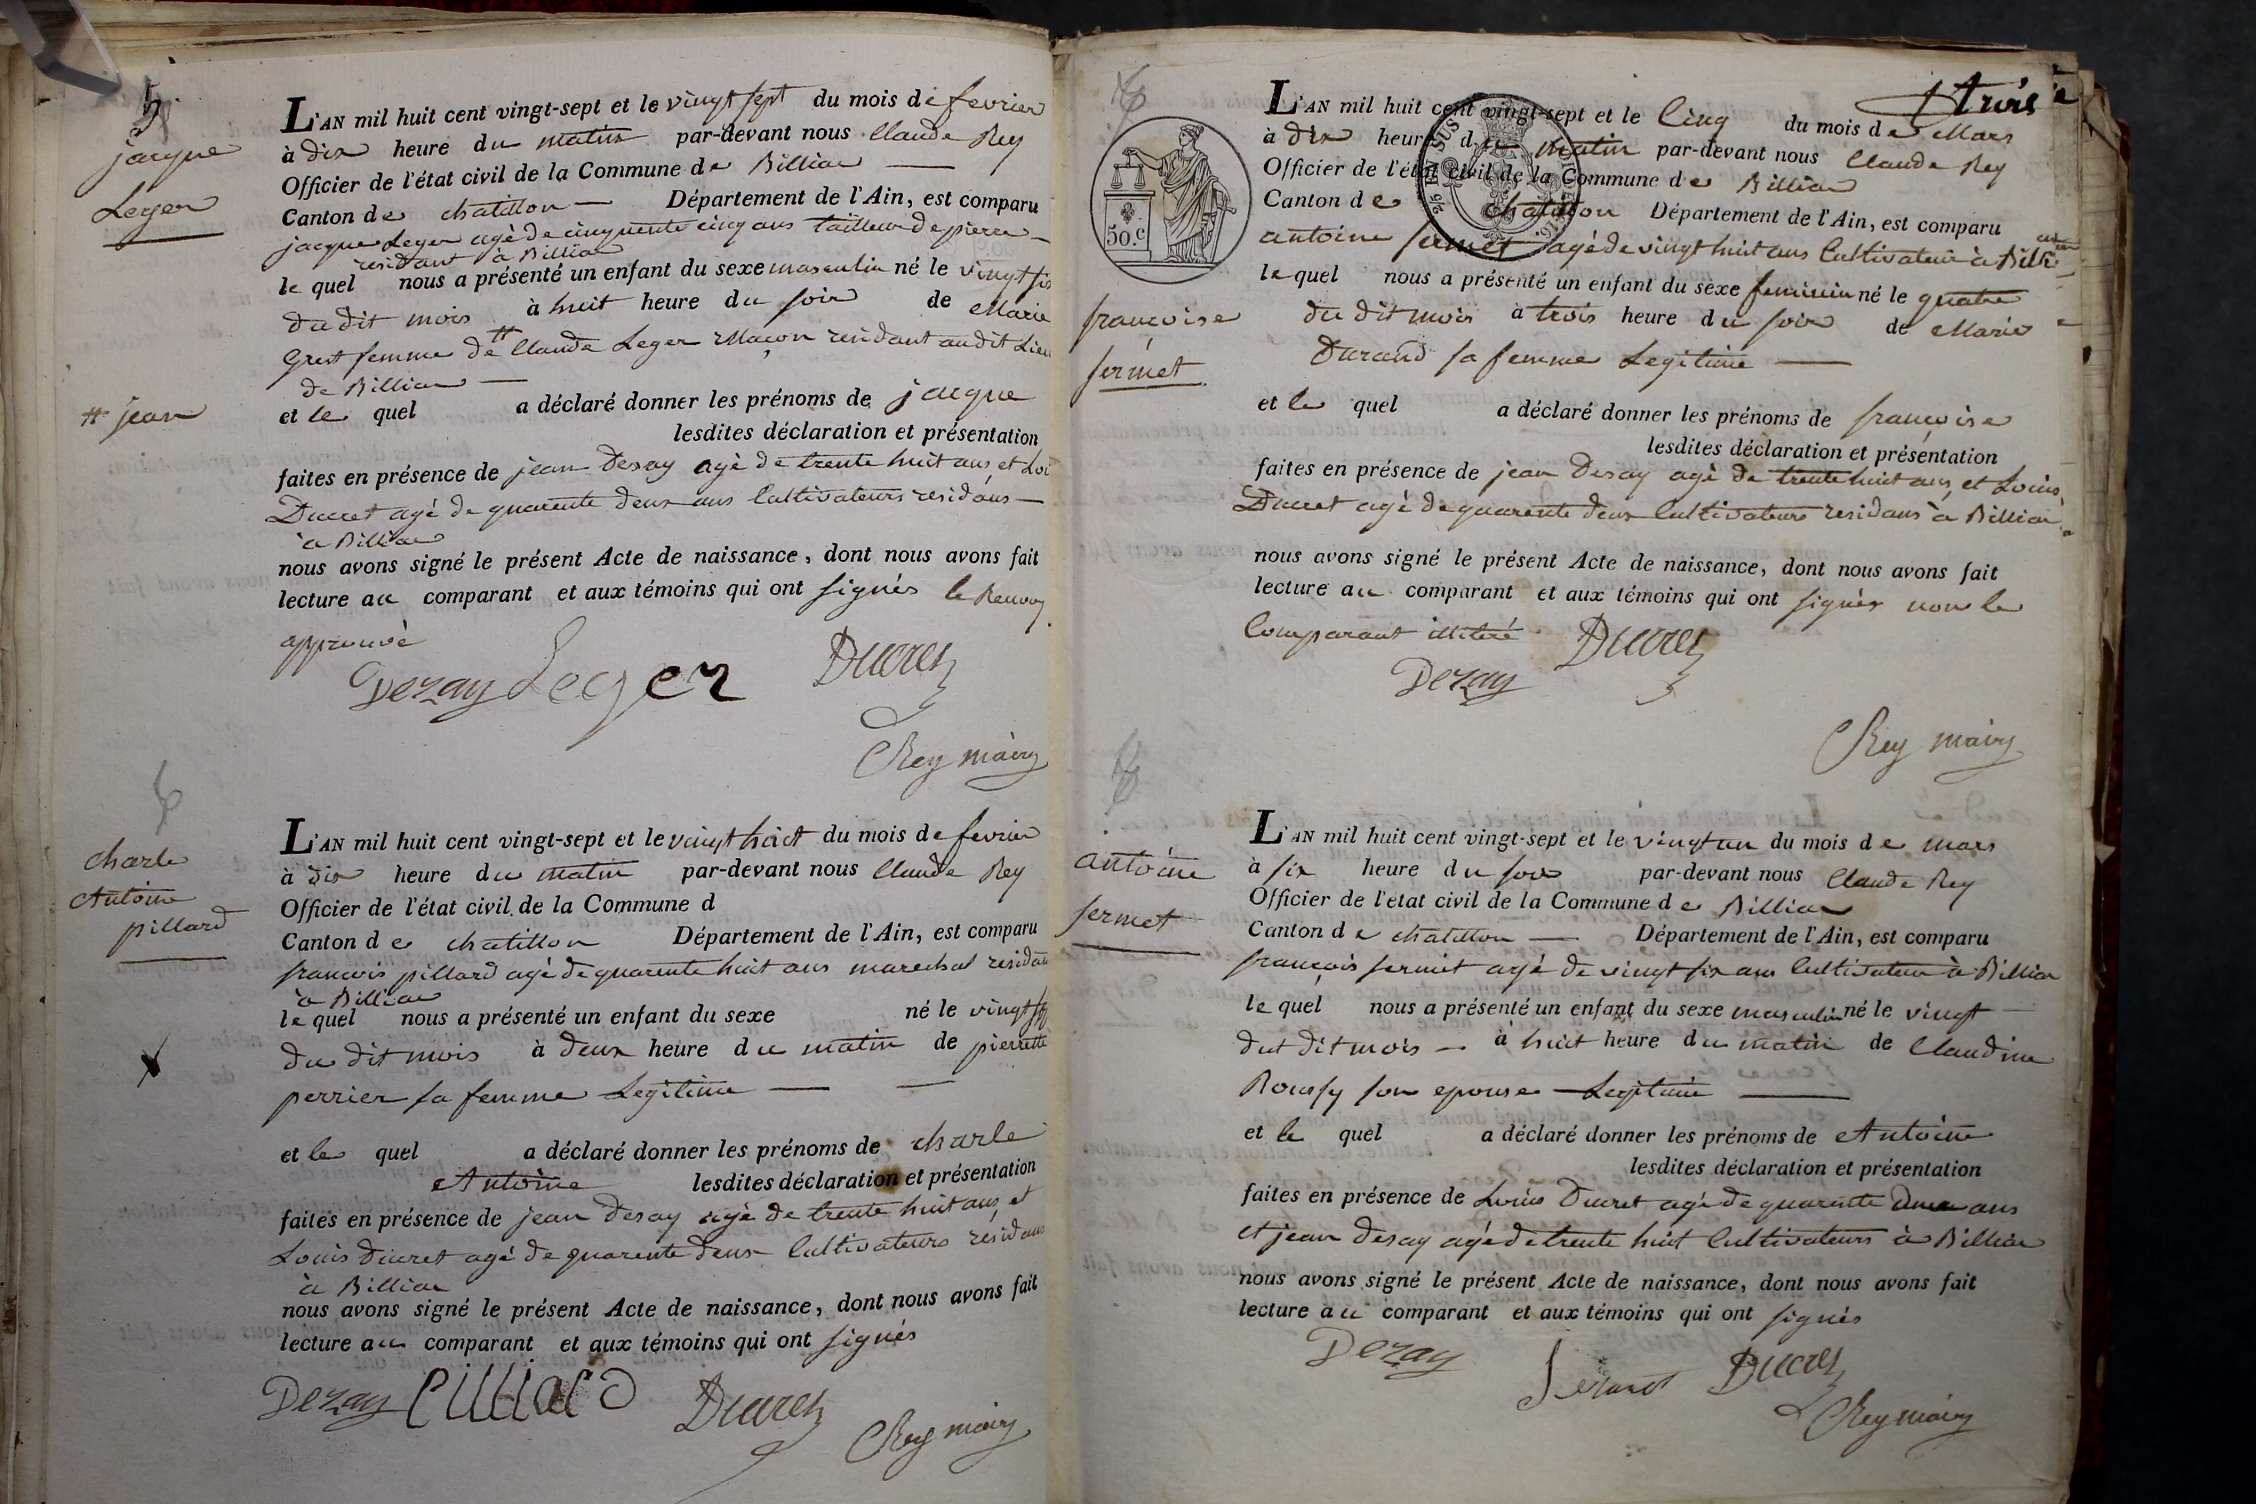 5.
jacque
Leger
L'AN mil huit cent vingt-sept et le vingt sept du mois de fevrier
à dix heure du matin par-devant nous Claude Rey
Officier de l'état civil de la Commune de Billiac
Canton de chatillon Département de l'Ain, est comparu
jacque Leger agé de cinquente cinq ans tailleur de pierre
residant à Billiac
le quel nous a présenté un enfant du sexe masculin né le vingt six
du dit mois à huit heure du soir de Marie
Grest femme de # Claude Leger Maçon residant audit Lieu
de Billiac
# jean
et le quel a déclaré donner les prénoms de jacque
lesdites déclaration et présentation
faites en présence de jean Desay agé de trente huit ans et Loi
Ducret agé de quarente deux ans Cultivateurs residans
à Billiac
nous avons signé le présent Acte de naissance, dont nous avons fait
lecture au comparant et aux témoins qui ont signés le Renvoy
approuvé
Dezay Leger Ducret
C Rey maire
charle
Antoine
pillard
L'AN mil huit cent vingt-sept et le vingt huit du mois de fevrier
à dix heure du matin par-devant nous Claude Rey
Officier de l'état civil de la Commune d
Canton de chatillon Département de l'Ain, est comparu
francois pillard agé de quarente huit ans marechal residan
à Billiac
le quel nous a présenté un enfant du sexe né le vingt
du dit mois à deux heure du matin de pierrette
perrier sa femme Legitime
et le quel a déclaré donner les prénoms de charle
Antoine lesdites déclaration et présentation
faites en présence de jean Desay agé de trente huit ans et
Louis Ducret agé de quarente deux Cultivateurs residans
à Billiac
nous avons signé le présent Acte de naissance, dont nous avons fait
lecture au comparant et aux témoins qui ont signés
Dezay Pilliard Ducret C Rey maire
trois
50.c
françoise
fermet
L'AN mil huit cent vingt-sept et le Cinq du mois de Mars
à dix heure du matin par-devant nous Claude Rey
Officier de l'état civil de la Commune de Billiac
Canton de chatillon Département de l'Ain, est comparu
antoine fermet agé de vingt huit ans Cultivateur à Billi
le quel nous a présenté un enfant du sexe feminin né le quatre
du dit mois à trois heure du soir de Marie
Durand sa femme Legitime
et le quel a déclaré donner les prénoms de françoise
lesdites déclaration et présentation
faites en présence de jean Desay agé de trente huit ans et Louis
Ducret agé de quarente deux Cultivateurs residans à Billiac
nous avons signé le présent Acte de naissance, dont nous avons fait
lecture au comparant et aux témoins qui ont signés non le
Comparant illitéré
Dezay Ducret
C Rey maire
antoine
fermet
L'AN mil huit cent vingt-sept et le vingt un du mois de mars
à six heure du soir par-devant nous Claude Rey
Officier de l'état civil de la Commune de Billiac
Canton de chatillon Département de l'Ain, est comparu
françois fermet agé de vingt six ans Cultivateur à Billiac
le quel nous a présenté un enfant du sexe masculin né le vingt
dut dit mois à huit heure du matin de Claudine
Roussy son epouse Legitime
et le quel a déclaré donner les prénoms de Antoine
lesdites déclaration et présentation
faites en présence de Louis Ducret agé de quarente deux ans
et jean Desay agé de trente huit Cultivateurs à Billiac
nous avons signé le présent Acte de naissance, dont nous avons fait
lecture au comparant et aux témoins qui ont signés
Dezay Ducret
C Rey maire